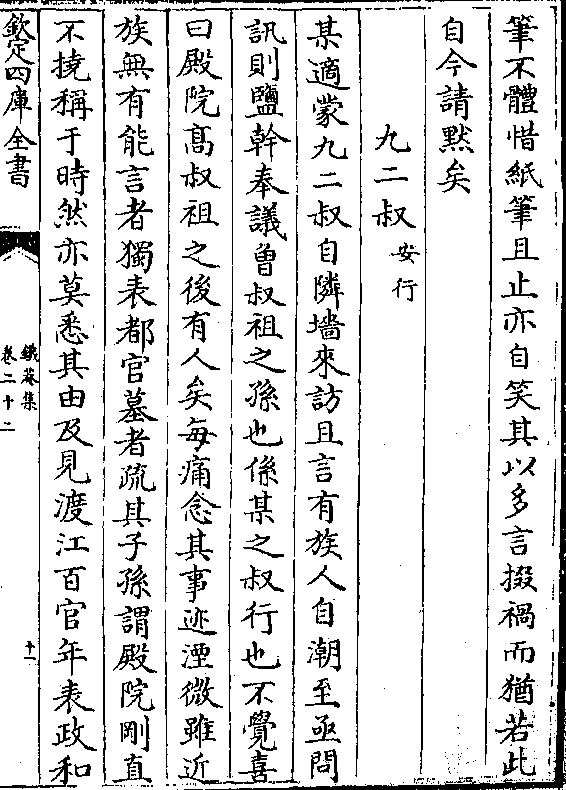 筆不體惜紙筆且止亦自笑其以多言掇禍而猶若此
自今請黙矣
九二叔安行
某適蒙九二叔自隣墻來訪且言有族人自潮至亟問
訊則鹽幹奉議曾叔祖之孫也係某之叔行也不覺喜
曰殿院髙叔祖之後有人矣每痛念其事迹湮微雖近
族無有能言者獨表都官墓者疏其子孫謂殿院剛直
不撓稱于時然亦莫悉其由及見渡江百官年表政和
欽定四庫全書
鐵菴集
卷二十二
十一